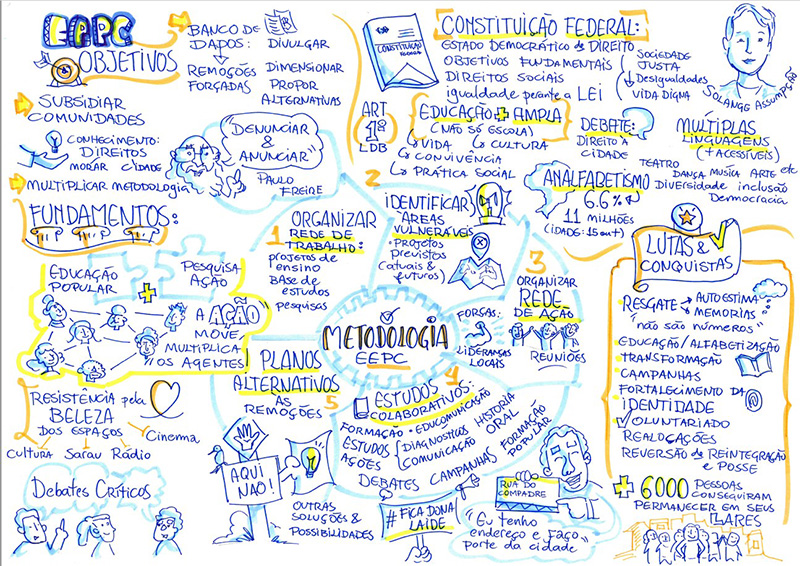 EPPC
OBJETIVOS
SUBSIDIAR
COMUNIDADES
CONHECIMENTO:
DIREITOS
MORAR CIDADE
MULTIPLICAR METODOLOGIA
BANCO DE
DADOS:
REMOÇÕES
FORÇADAS
DIVULGAR
DIMENSIONAR
PROPOR
ALTERNATIVAS
DENUNCIAR
&
ANUNCIAR
PAULO
FREIRE
CONSTITUIÇÃO
FEDERAL
CONSTITUIÇÃO FEDERAL:
ESTADO DEMOCRÁTICO de DIREITO
OBJETIVOS FUNDAMENTAIS
DIREITOS SOCIAIS
igualdade perante a LEI
SOCIEDADE
JUSTA
Desigualdades
VIDA DIGNA
SOLANGE ASSUMPÇÃO
ART
1º
LDB
EDUCAÇÃO + AMPLA
(NÃO SÓ ESCOLA)
VIDA
CULTURA
CONVIVÊNCIA
PRÁTICA SOCIAL
DEBATE:
DIREITO À
CIDADE
MÚLTIPLAS
LINGUAGENS
(+ ACESSÍVEIS)
TEATRO
DANÇA MUSICA ARTE etc
Diversidade inclusão
Democracia
ANALFABETISMO
6.6%
11 MILHÕES
(IDADE: 15 ou +)
FUNDAMENTOS:
EDUCAÇÃO
POPULAR
+
PESQUISA
AÇÃO
A "AÇÃO"
MOVE
MULTIPLICA
OS AGENTES
RESISTÊNCIA pela
BELEZA
DOS ESPAÇOS
Cultura Sarau Rádio
Cinema
Debates Críticos
METODOLOGIA
EEPC
1
ORGANIZAR
REDE DE
TRABALHO:
projetos de
ensino
Base de
estudos
pesquisas
2
IDENTIFICAR
"AREAS
VULNERÁVEIS
• Projetos
previstos
(atuais &
futuros)
3
ORGANIZAR
REDE
DE AÇÃO
FORÇAS:
LIDERANÇAS
LOCAIS
REUNIÕES
4
ESTUDOS
COLABORATIVOS:
FORMAÇÃO • EDUCOMUNICAÇÃO
ESTUDOS
AÇÕES
DIAGNOSTICOS
COMUNICAÇÃO
HISTORIA
ORAL
DEBATES CAMPANHAS FORMAÇÃO
POPULAR
5
PLANOS
ALTERNATIVOS
ÀS
REMOÇÕES
AQUI
NÃO!
OUTRAS
SOLUÇÕES &
POSSIBILIDADES
# FICA DONA
LAIDE
RUA DO
COMPADRE
"Eu tenho
endereço e faço
parte da cidade
LUTAS &
CONQUISTAS
RESGATE
AUTOESTIMA
MEMORIAS
"não são números"
EDUCAÇÃO/ALFABETIZAÇÃO
TRANSFORMAÇÃO
CAMPANHAS
FORTALECIMENTO DA
IDENTIDADE
VOLUNTARIADO
REALOCAÇÕES
REVERSÃO DE REINTEGRAÇÃO
e POSSE
+ 6000 PESSOAS
CONSEGUIRAM
PERMANECER EM SEUS
LARES